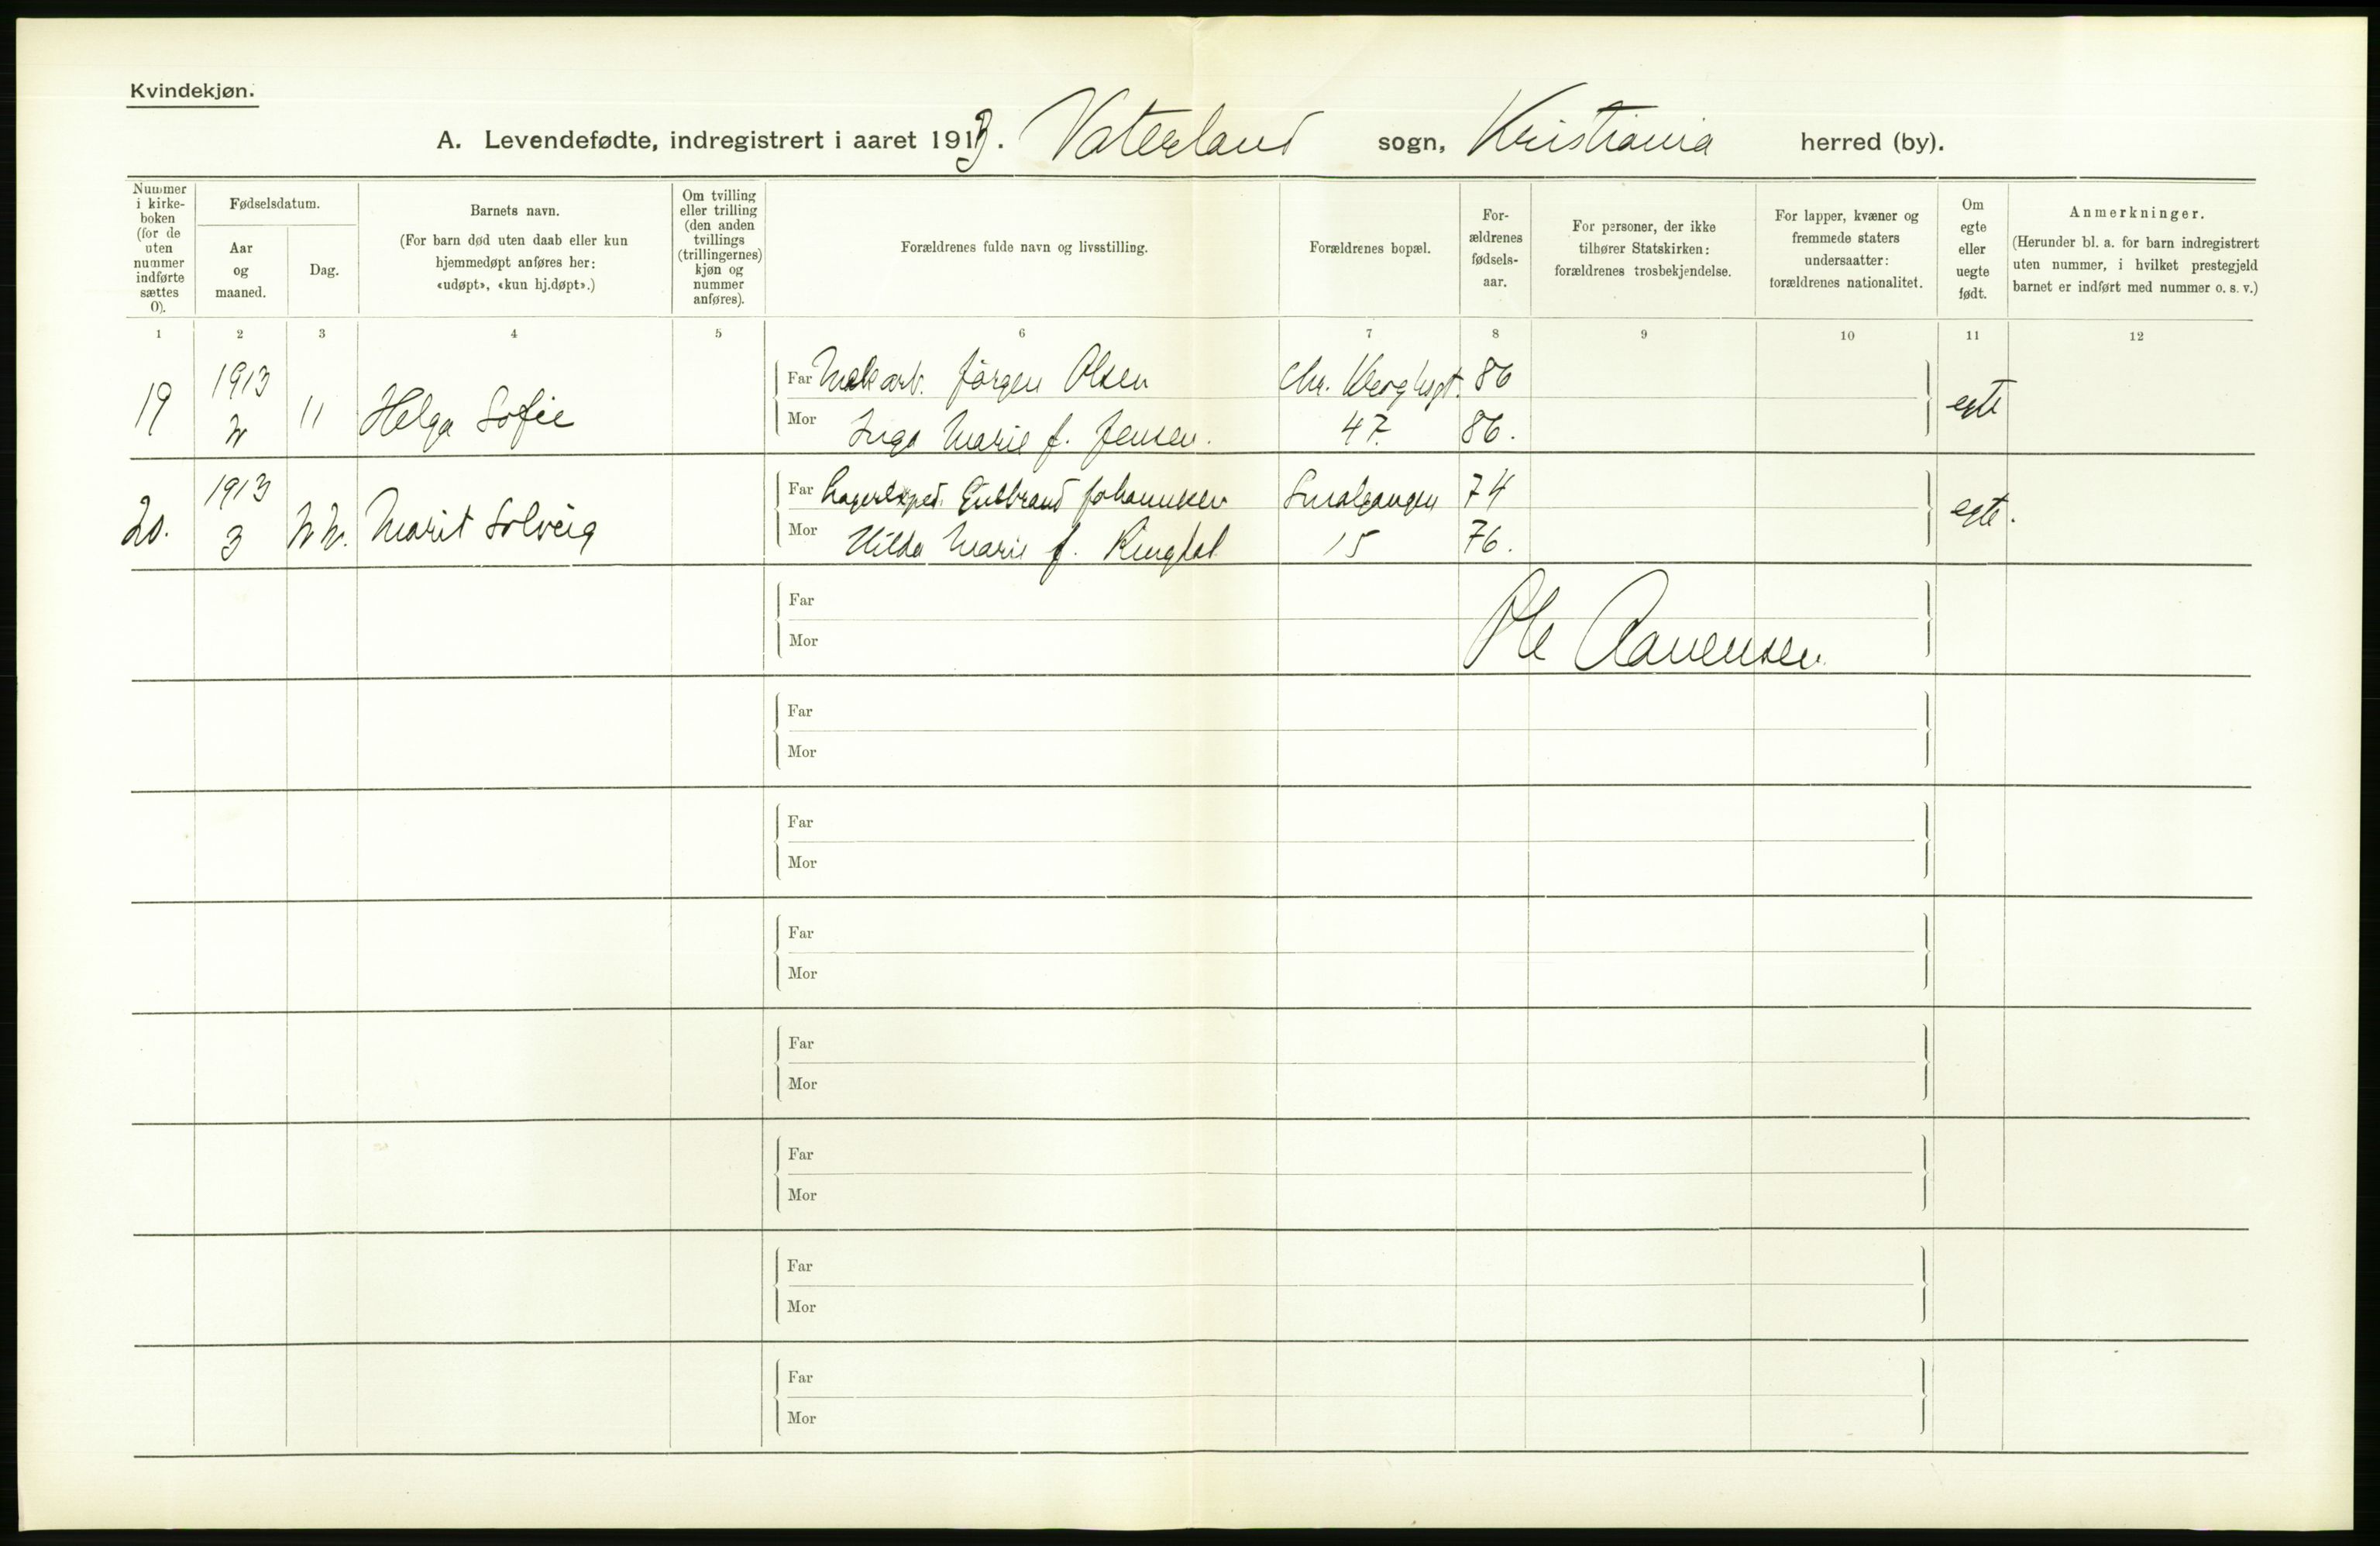 Kvindekjøn.
A. Levendefødte, indregistrert i aaret 1913. Vaterland sogn, Kristiania herred (by).
Nummer i kirke-boken (for de uten nummer indførte sættes 0).
Fødselsdatum.
Aar og maaned.
Dag.
Barnets navn.
(For barn død uten daab eller kun hjemmedøpt anføres her: «udøpt», «kun hj.døpt».)
Om tvilling eller trilling (den anden tvillings (trillingernes) kjøn og nummer anføres).
Forældrenes fulde navn og livsstilling.
Forældrenes bopæl.
For-ældrenes fødsels-aar.
For personer, der ikke tilhører Statskirken: forældrenes trosbekjendelse.
For lapper, kvæner og fremmede staters undersaatter: forældrenes nationalitet.
Om egte eller uegte født.
Anmerkninger.
(Herunder bl. a. for barn indregistrert uten nummer, i hvilket prestegjeld barnet er indført med nummer o. s. v.)
1 2 3 4 5 6 7 8 9 10 11 12
19 1913 2 11 Helga Sofie
Far Mekarb. Jörgen Olsen Chr. Kroghsgt. 86
Mor Inga Marie f. Jensen. 47. 86.
egte
20. 1913 3 22. Marit Solveig
Far Lagerexped. Gulbrand Johannesen Smalgangen 74
Mor Hilda Marie f. Ringdal 15 76.
egte.
Far
Mor
Ole
Far
Mor
Far
Mor
Far
Mor
Far
Mor
Far
Mor
Far
Mor
Far
Mor